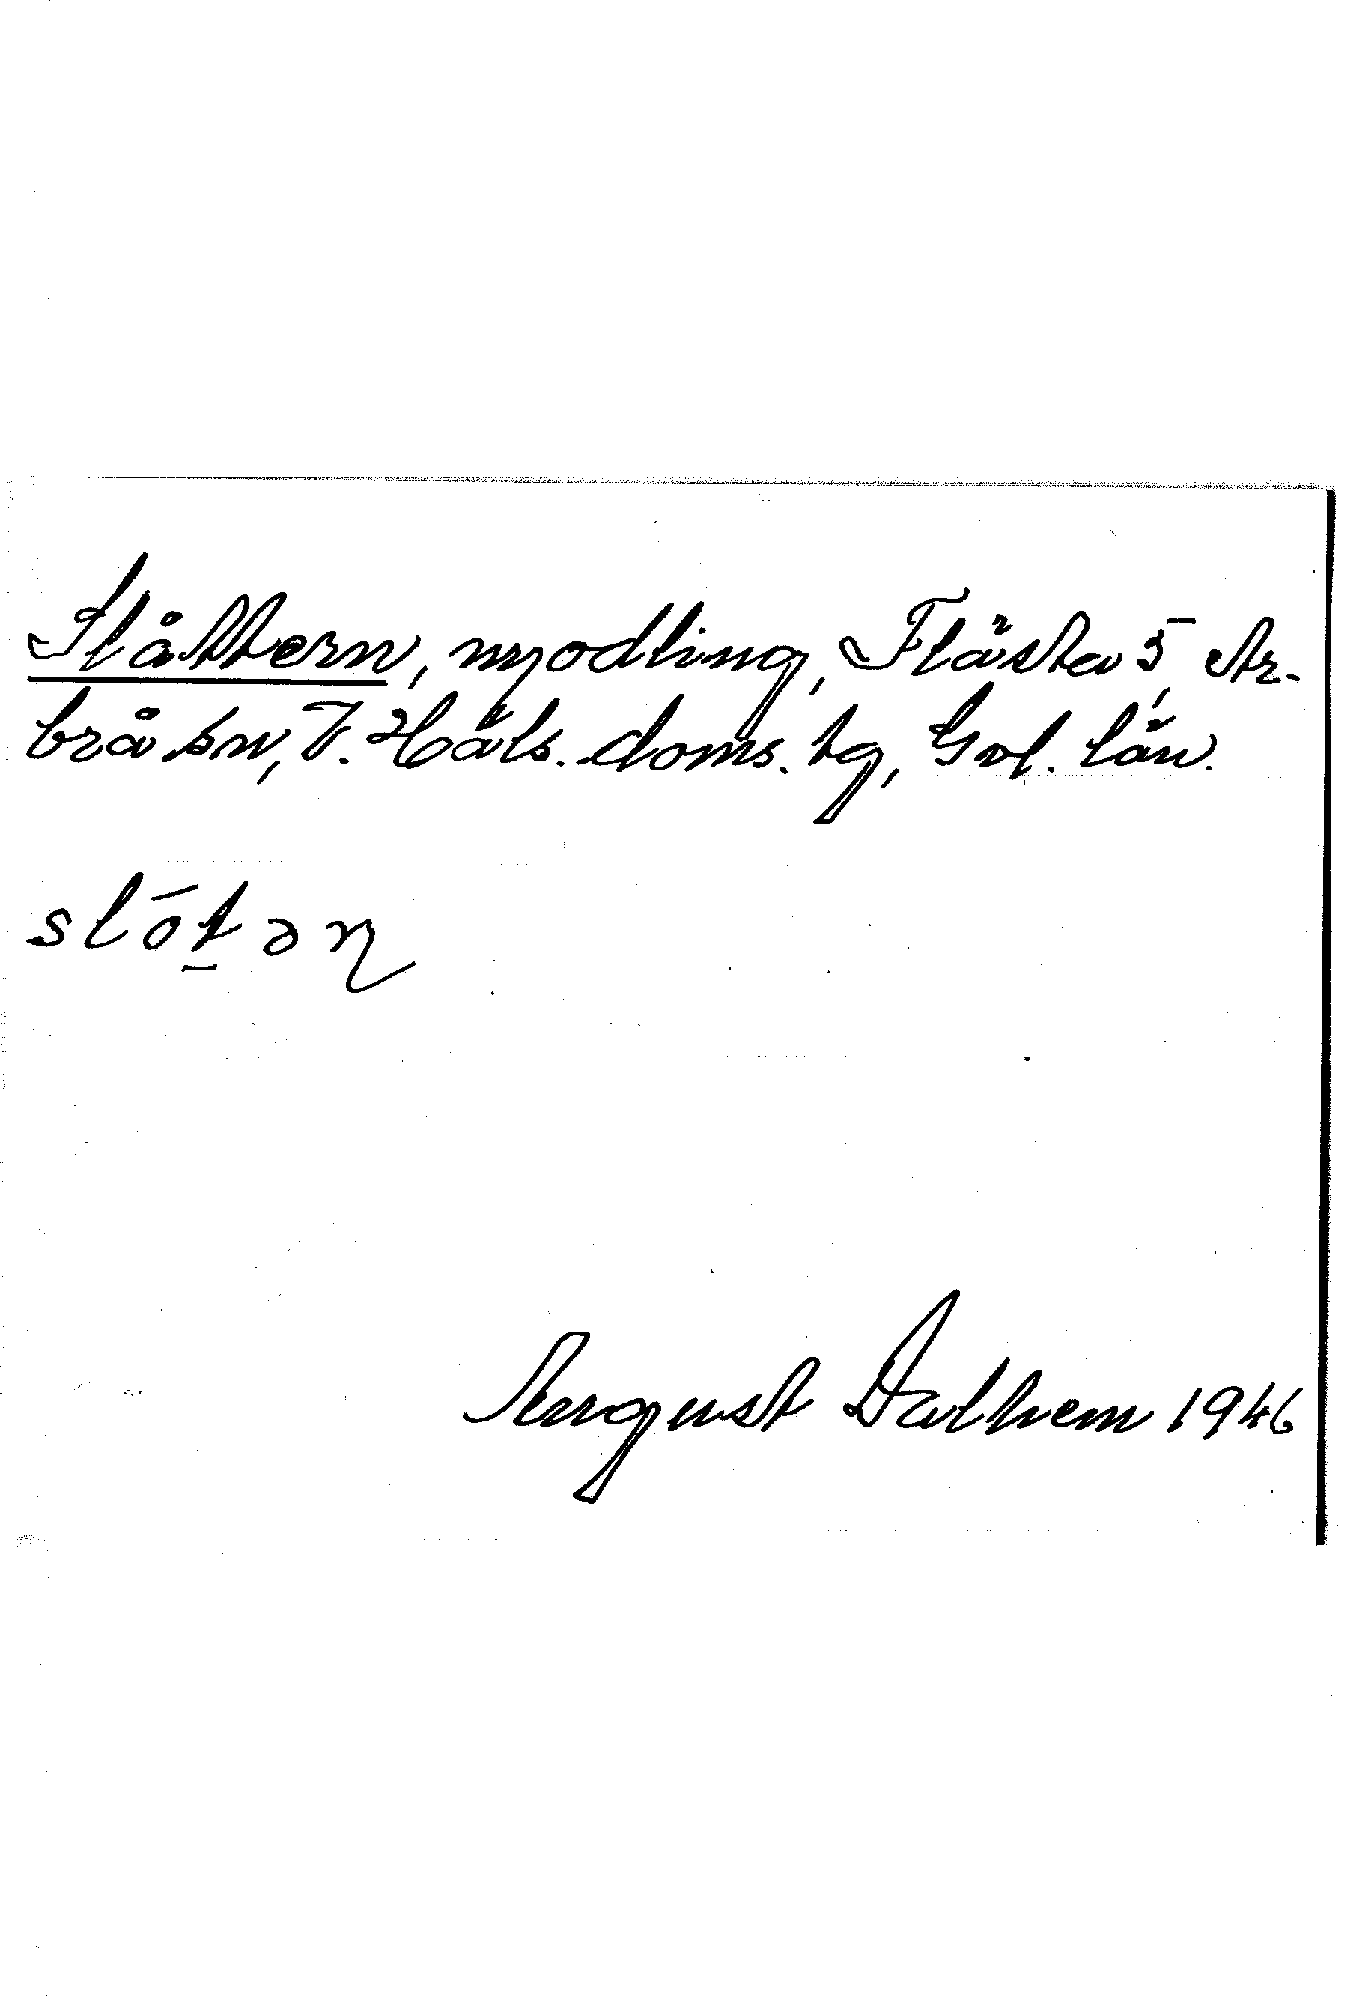 Slåttern, nyodling, Flästa 5, Ar-
brå sn, V. Häls. doms. tg, Gvl. län.
slót̲əɳ
August Dalhem 1946